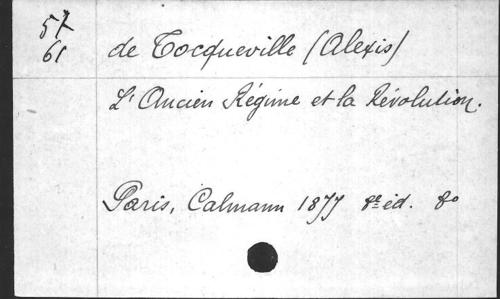 57
61
de Tocqueville (Alexis)
L'Ancien Régime et la Révolution.
Paris, Calmann 1877 8e éd. 8o